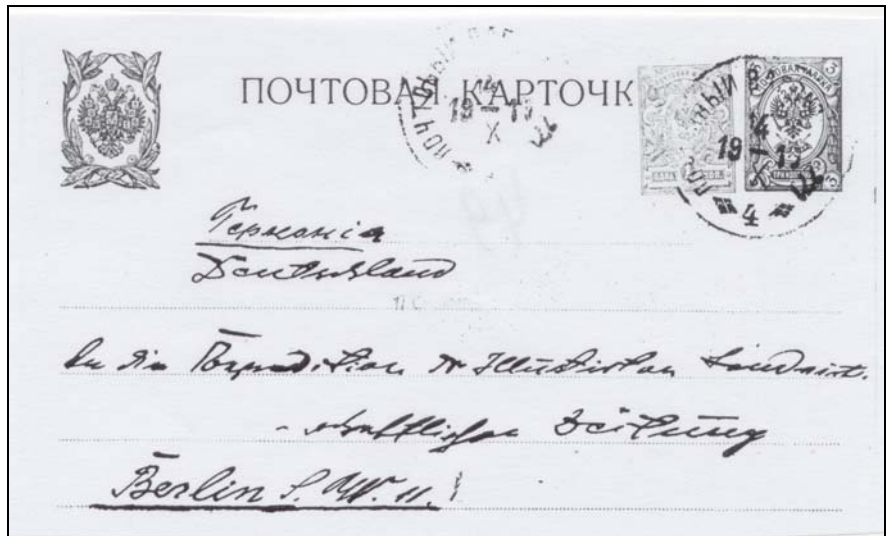 ПОЧТОВАЯ КАРТОЧК
ПОЧТОВЫЙ ВАГ
14
19 — 1
X
ПО НЫЙ В
14
19 — 1
X
4
3 3
3 3
Германія
Deutschland
An die Expedition der Illustrirten Landwirt.
- schaftlichen Zeitung
Berlin S. W. 11.